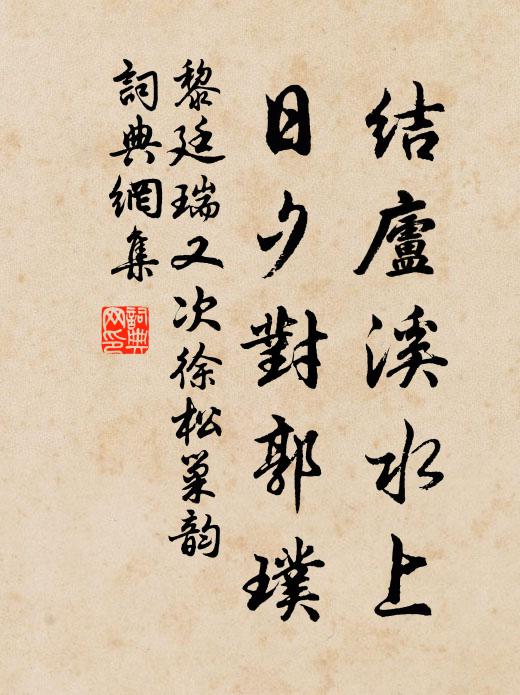 结廬溪水上
日夕對郭璞
黎廷瑞又次徐松巢韵
詞典網集
詞典网印